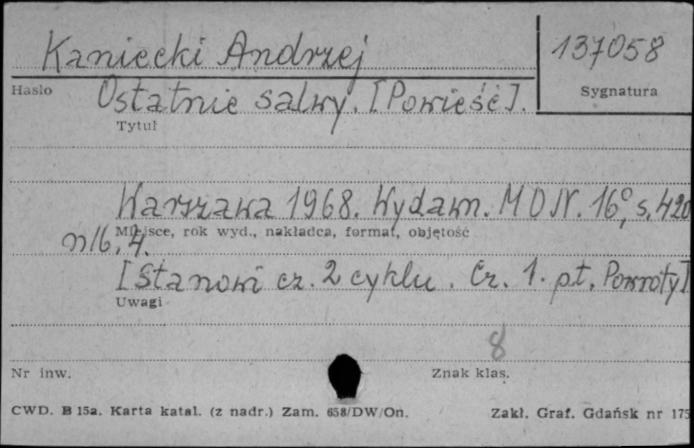 Kaniecki Andrzej
137058
Hasło
Sygnatura
Ostatnie salwy. [Powieść].
Tytuł
Warszawa 1968. Wydawn. MON. 16°, s. 420
Miejsce, rok wyd., nakładca, format, objętość
nlb, 4.
[Stanowi cz. 2 cyklu. Cz. 1. pt. Powroty]
Uwagi
8
Nr inw.
Znak klas.
CWD. B 15a. Karta katal. (z nadr.) Zam. 658/DW/On.
Zakł. Graf. Gdańsk nr 175